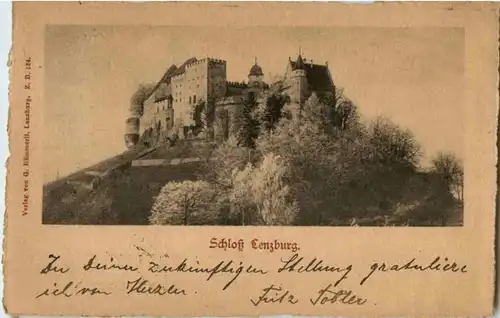 Verlag von G. Rümmerli, Lenzburg. Z. D. 124.
Schloß Lenzburg.
Zu Deiner zukünftigen Stellung gratuliere
ich von Herzen. Fritz Tobler